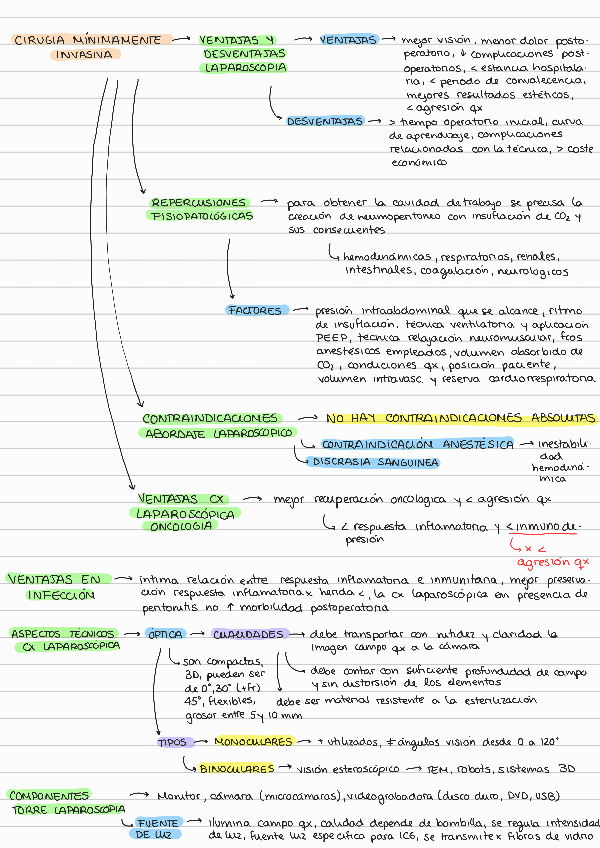 CIRUGIA MÍNIMAMENTE INVASIVA → VENTAJAS Y DESVENTAJAS LAPAROSCOPIA → VENTAJAS → mejor visión, menor dolor posto-
peratorio, ↓ complicaciones post-
operatorios, < estancia hospitala-
ria, < periodo de convalecencia,
mejores resultados estéticos,
< agresión qx
DESVENTAJAS → > tiempo operatorio inicial, curva
de aprendizaje, complicaciones
relacionadas con la técnica, > coste
económico
REPERCUSIONES FISIOPATOLÓGICAS → para obtener la cavidad de trabajo se precisa la
creación de neumoperitoneo con insuflación de CO2 y
sus consecuentes
↳ hemodinámicas, respiratorios, renales,
intestinales, coagulación, neurologicos
FACTORES → presión intraabdominal que se alcance, ritmo
de insuflación, técnica ventilatoria y aplicación
PEEP, técnica relajación neuromuscular, fcos
anestésicos empleados, volumen absorbido de
CO2, condiciones qx, posición paciente,
volumen intravasc. y reserva cardiorrespiratoria
CONTRAINDICACIONES ABORDAJE LAPAROSCOPICO → NO HAY CONTRAINDICACIONES ABSOLUTAS
↳ CONTRAINDICACIÓN ANESTÉSICA → inestabili-
dad
hemodiná-
mica
↳ DISCRASIA SANGUINEA
VENTAJAS CX LAPAROSCÓPICA ONCOLOGIA → mejor recuperación oncologica y < agresión qx
↳ < respuesta inflamatoria y < inmunode-
presión
↳ x <
agresión qx
VENTAJAS EN INFECCIÓN → íntima relación entre respuesta inflamatoria e inmunitaria, mejor preserva-
ción respuesta inflamatoria x herida <, la cx laparoscópica en presencia de
peritonitis no ↑ morbilidad postoperatoria
ASPECTOS TÉCNICOS CX LAPAROSCÓPICA → ÓPTICA → CUALIDADES → debe transportar con nitidez y claridad la
imagen campo qx a la cámara
↳ debe contar con suficiente profundidad de campo
y sin distorsión de los elementos
debe ser material resistente a la esterilización
↳ son compactas,
3D, pueden ser
de 0°, 30° (+Fr)
45°, flexibles,
grosor entre 5 y 10 mm
TIPOS → MONOCULARES → + utilizados, ≠ ángulos visión desde 0 a 120°
↳ BINOCULARES → visión esteroscópico → TEM, robots, sistemas 3D
COMPONENTES TORRE LAPAROSCOPIA → Monitor, cámara (microcámaras), videograbadora (disco duro, DVD, USB)
↳ FUENTE DE LUZ → ilumina campo qx, calidad depende de bombilla, se regula intensidad
de luz, fuente luz especifica para ICG, se transmite x fibras de vidrio